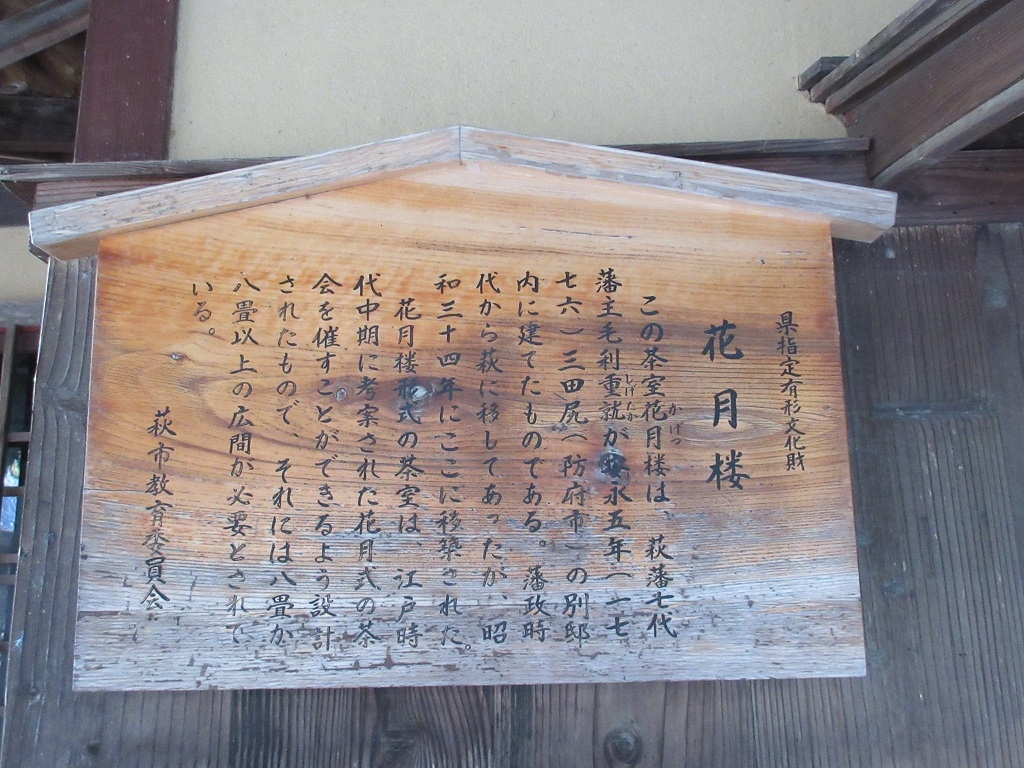 県指定有形文化財
花月楼
この茶室花月楼は、萩藩七代
かげつ
藩主毛利重就が安永五年(一七
しげなか
七六)三田尻(防府市)の別邸
内に建てたものである。藩政時
代から萩に移してあったが、昭
和三十四年にここに移築された。
花月楼形式の茶室は、江戸時
代中期に考案された花月式の茶
会を催すことができるよう設計
されたもので、それには八畳か
八畳以上の広間が必要とされて
いる。
萩市教育委員会